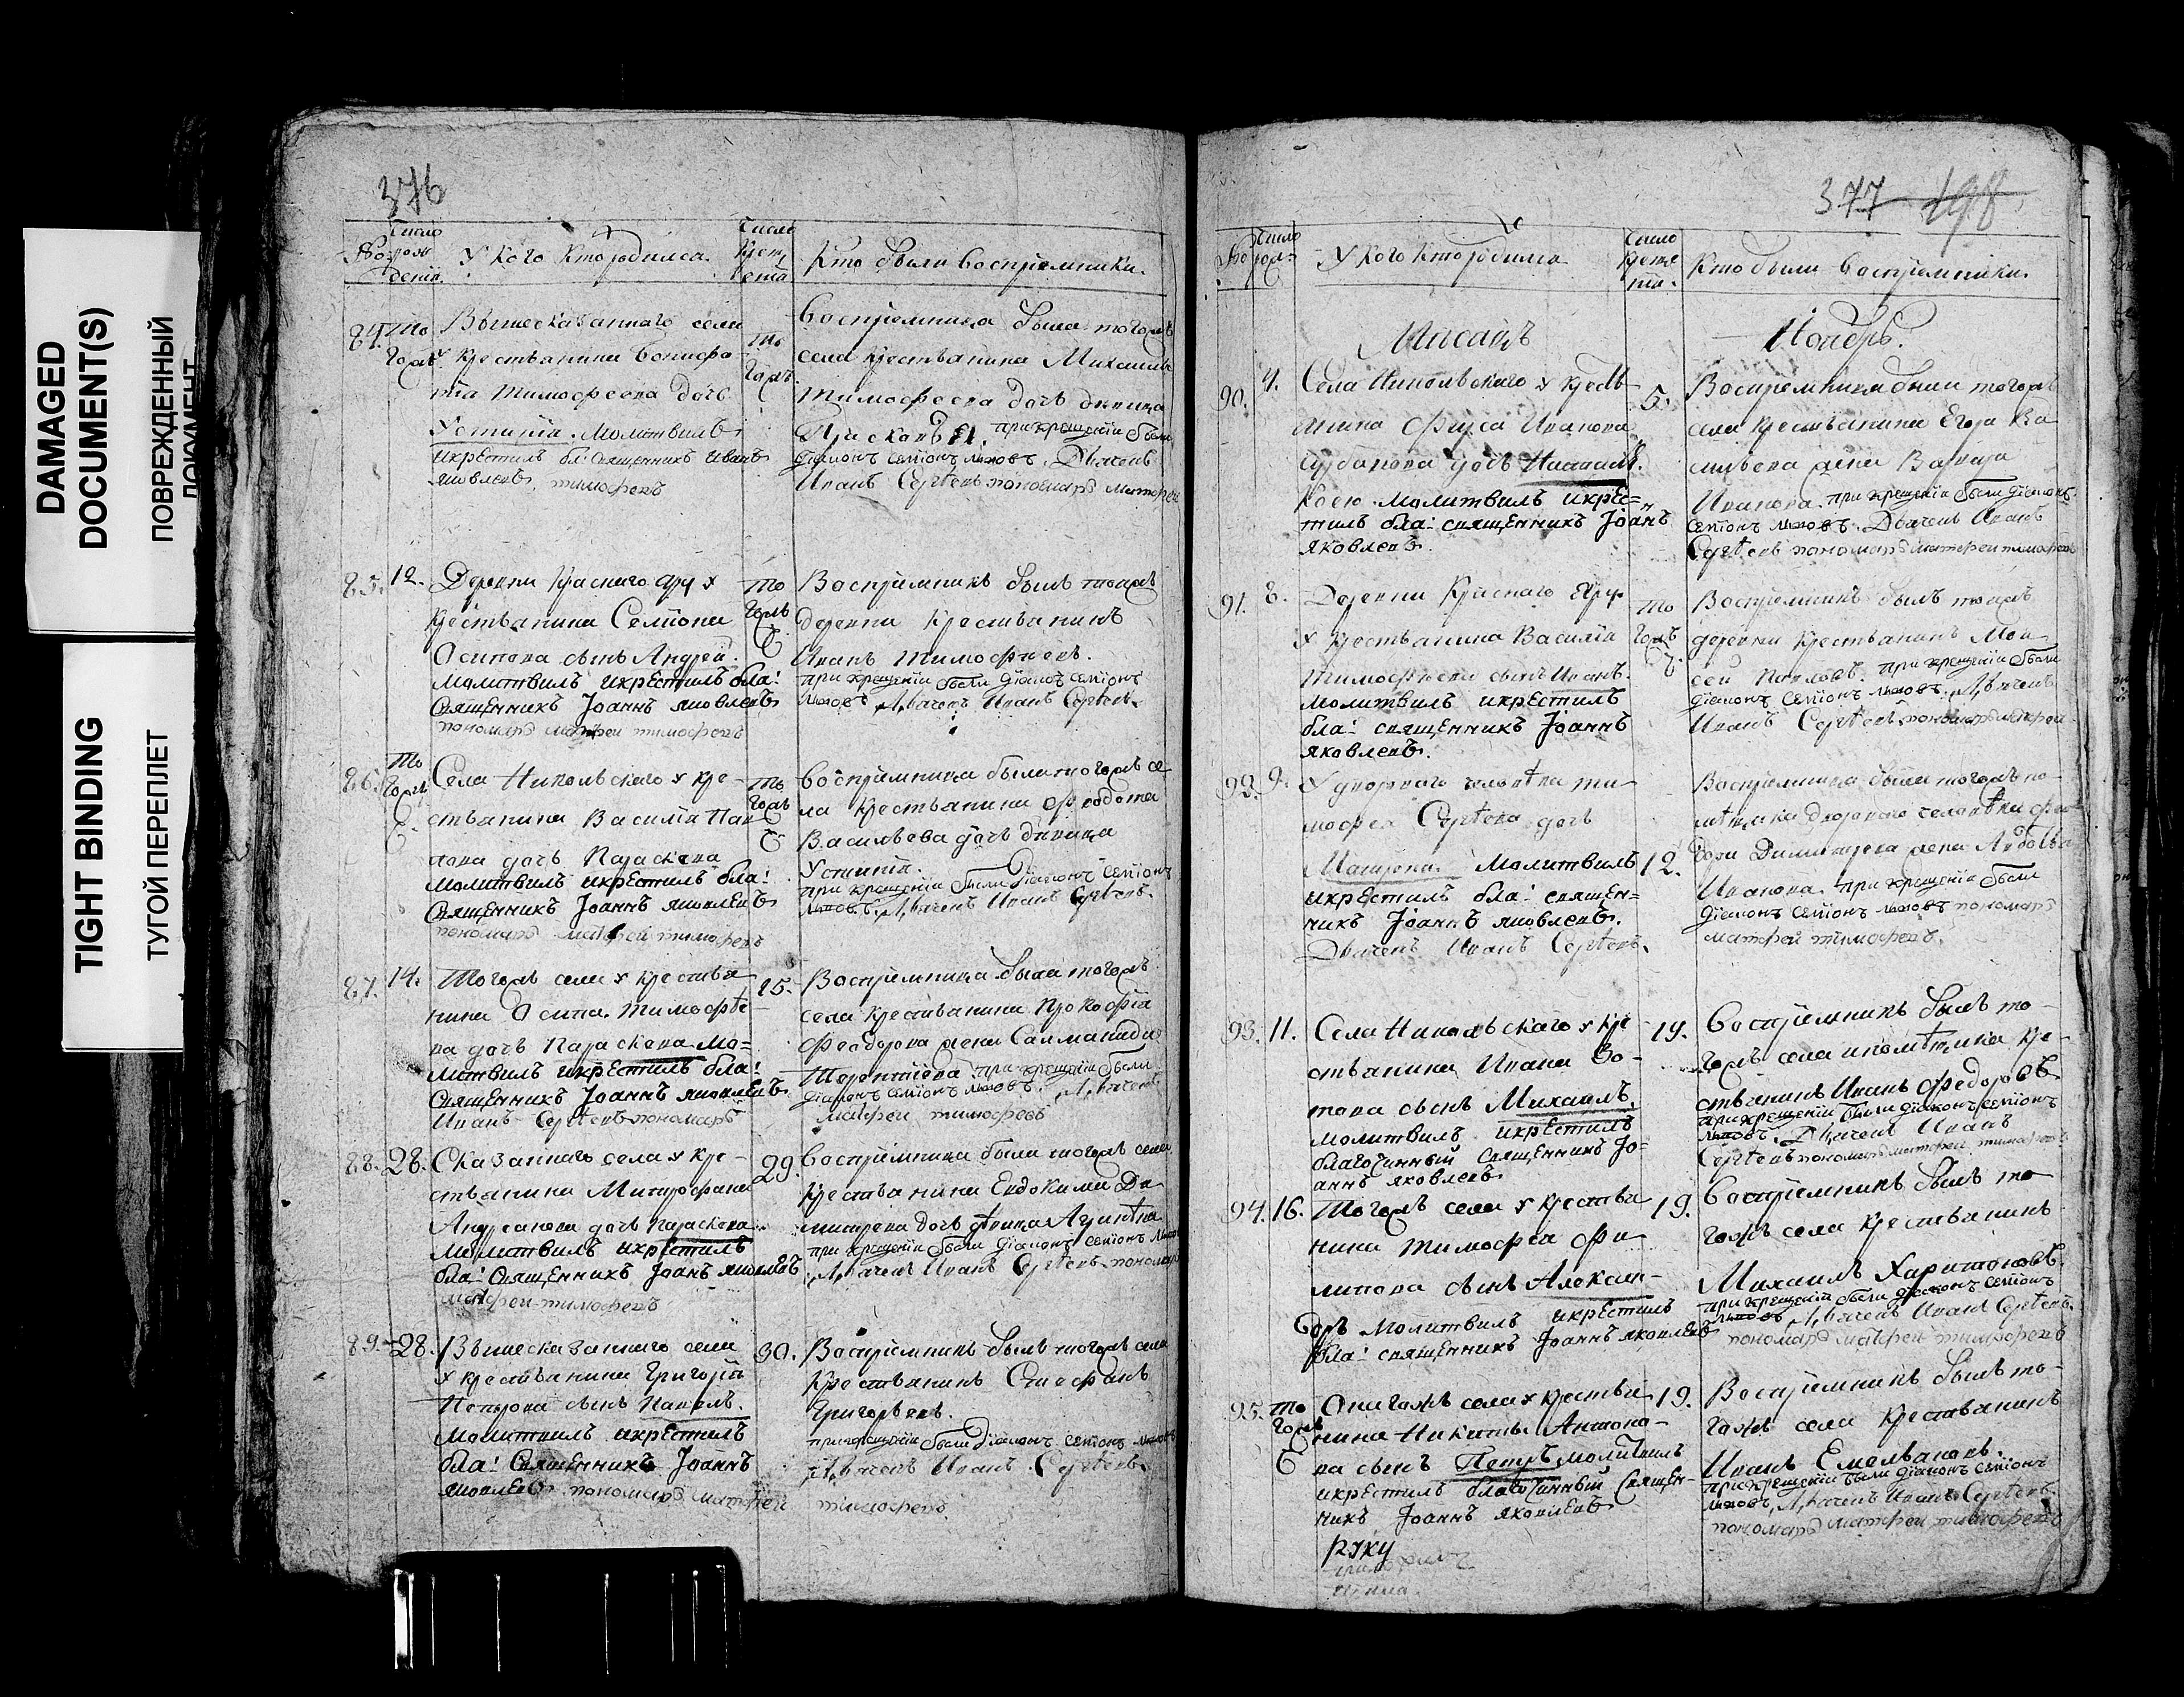 DAMAGED
DOCUMENT(S)
ПОВРЕЖДЕННЫЙ
ДОКУМЕНТ
TIGHT BINDING
ТУГОЙ ПЕРЕПЛЕТ
376
У кого кто родился.
Кто были воспріемники.
84. То
Вышесказаннаго села
у крестьянина Бонифа-
тія Тимофеева дочь
Устинія. Молитвилъ
и крестилъ бл: священникъ Иванъ
Яковлевъ. тимофеевъ
то
воспріемница была тогожъ
села крестьянина Михаила
Тимофеева дочь девица
при крещеніи были
діаконъ семіонъ Дьячекъ
Иванъ Сергѣевъ пономарь
85. 12.
Деревни Краснаго у
крестьянина Семіона
Осипова сынъ Андрей.
молитвилъ и крестилъ бла:
священникъ Іоаннъ яковлевъ
пономарь матфей тимофеевъ
то
Воспріемникъ былъ тояжъ
деревни крестьянинъ
Иванъ Тимофеевъ.
при крещеніи были діаконъ семіонъ
Дьячекъ Иванъ Сергѣевъ.
86. То
Села Никольскаго у кре-
стьянина Василія Пав
лова дочь Параскева
молитвилъ и крестилъ бла:
священникъ Іоаннъ яковлевъ
пономарь матфей тимофеевъ
то
воспріемница была тогожъ се
ла крестьянина Феодота
Васильева дочь девица
Устинія.
при крещеніи были діаконъ семіонъ
Дьячекъ Иванъ Сергѣевъ.
87. 14.
Тогожъ села у крестья
нина Осипа Тимофѣе-
ва дочь Параскева мо=
литвилъ и крестилъ бла:
священникъ Іоаннъ яковлевъ
Иванъ Сергѣевъ пономарь
15.
Воспріемница была тогожъ
села крестьянина Прокофія
Феодорова жена Саломанида
Терентіева при крещеніи были
діаконъ семіонъ Дьячекъ
матфей тимофеевъ
88. 28.
Сказаннаго села у кре-
стьянина Митрофана
Андреанова дочь Параскева
молитвилъ и крестилъ
бла: священникъ Іоанъ яковлевъ
матфей тимофеевъ
29.
воспріемница была тогожъ села
крестьянина Евдокима Ди
митрева дочь девица
при крещеніи были діаконъ семіонъ
Дьячекъ Иванъ Сергѣевъ пономарь
89. 28.
Вышесказаннаго села
у крестьянина Григорія
Петрова сынъ Павелъ.
молитвилъ и крестилъ
бла: священникъ Іоаннъ
яковлевъ пономарь матфей
30.
Воспріемникъ былъ тогожъ села
крестьянинъ Стефанъ
Григорьевъ.
при крещеніи были діаконъ семіонъ
Дьячекъ Иванъ Сергѣевъ
тимофеевъ
377 198
У кого кто родился
Кто были воспріемники.
Мѣсяцъ
Ноябрь.
90. 4.
Села Никольскаго у кресть
янина Фирса Иванова
дочь
молитвилъ и крес=
тилъ бла: священникъ Іоаннъ
яковлевъ.
5.
Воспріемница была тогожъ
села крестьянина Егора Ва
сильева жена Варвара
Иванова. при крещеніи были діаконъ
семіонъ Дьячекъ Иванъ
Сергѣевъ пономарь матфей тимофеевъ
91. 8.
Деревни Краснаго
у крестьянина Василія
Тимофеева сынъ Иванъ.
молитвилъ и крестилъ
бла: священникъ Іоаннъ
яковлевъ.
то
Воспріемникъ былъ тояжъ
деревни крестьянинъ Мои
сей Павловъ. при крещеніи были
діаконъ семіонъ Дьячекъ
Иванъ Сергѣевъ пономарь матфей
92. 9.
У дворового человѣка ти
мофея Сергѣева дочь
Матрона. Молитвилъ
и крестилъ бла: священ=
никъ Іоаннъ яковлевъ.
Дьячекъ Иванъ Сергѣевъ.
12.
Воспріемница была тогожъ по-
мѣщика дворового человѣка Фео
дора Димитріева жена Авдотья
Иванова. при крещеніи были
діаконъ семіонъ пономарь
матфей тимофеевъ.
93. 11.
Села Никольскаго у кре
стьянина Ивана Зо-
това сынъ Михаилъ.
молитвилъ и крестилъ
благочинный священникъ Іо-
аннъ яковлевъ
19.
Воспріемникъ былъ то-
гожъ села и помѣщика кре-
стьянинъ Иванъ Федоровъ
при крещеніи были діаконъ семіонъ
Дьячекъ Иванъ
Сергѣевъ пономарь матфей тимофеевъ
94. 16.
Тогожъ села у крестья
нина Тимофея Фи
липова сынъ Алексан-
дръ молитвилъ и крестилъ
бла: священникъ Іоаннъ яковлевъ
19.
Воспріемникъ былъ то
гожъ села крестьянинъ
Михаилъ Харитоновъ.
при крещеніи были діаконъ семіонъ
Дьячекъ Иванъ Сергѣевъ.
пономарь матфей тимофеевъ
95. то
Онагожъ села у крестья
нина Никиты Антоно-
ва сынъ Петръ молитвилъ
и крестилъ благочинный священ-
никъ Іоаннъ яковлевъ
руку
19.
Воспріемникъ былъ то-
гожъ села крестьянинъ
Иванъ Емельяновъ.
при крещеніи были діаконъ семіонъ
Дьячекъ Иванъ Сергѣевъ
пономарь матфей тимофеевъ